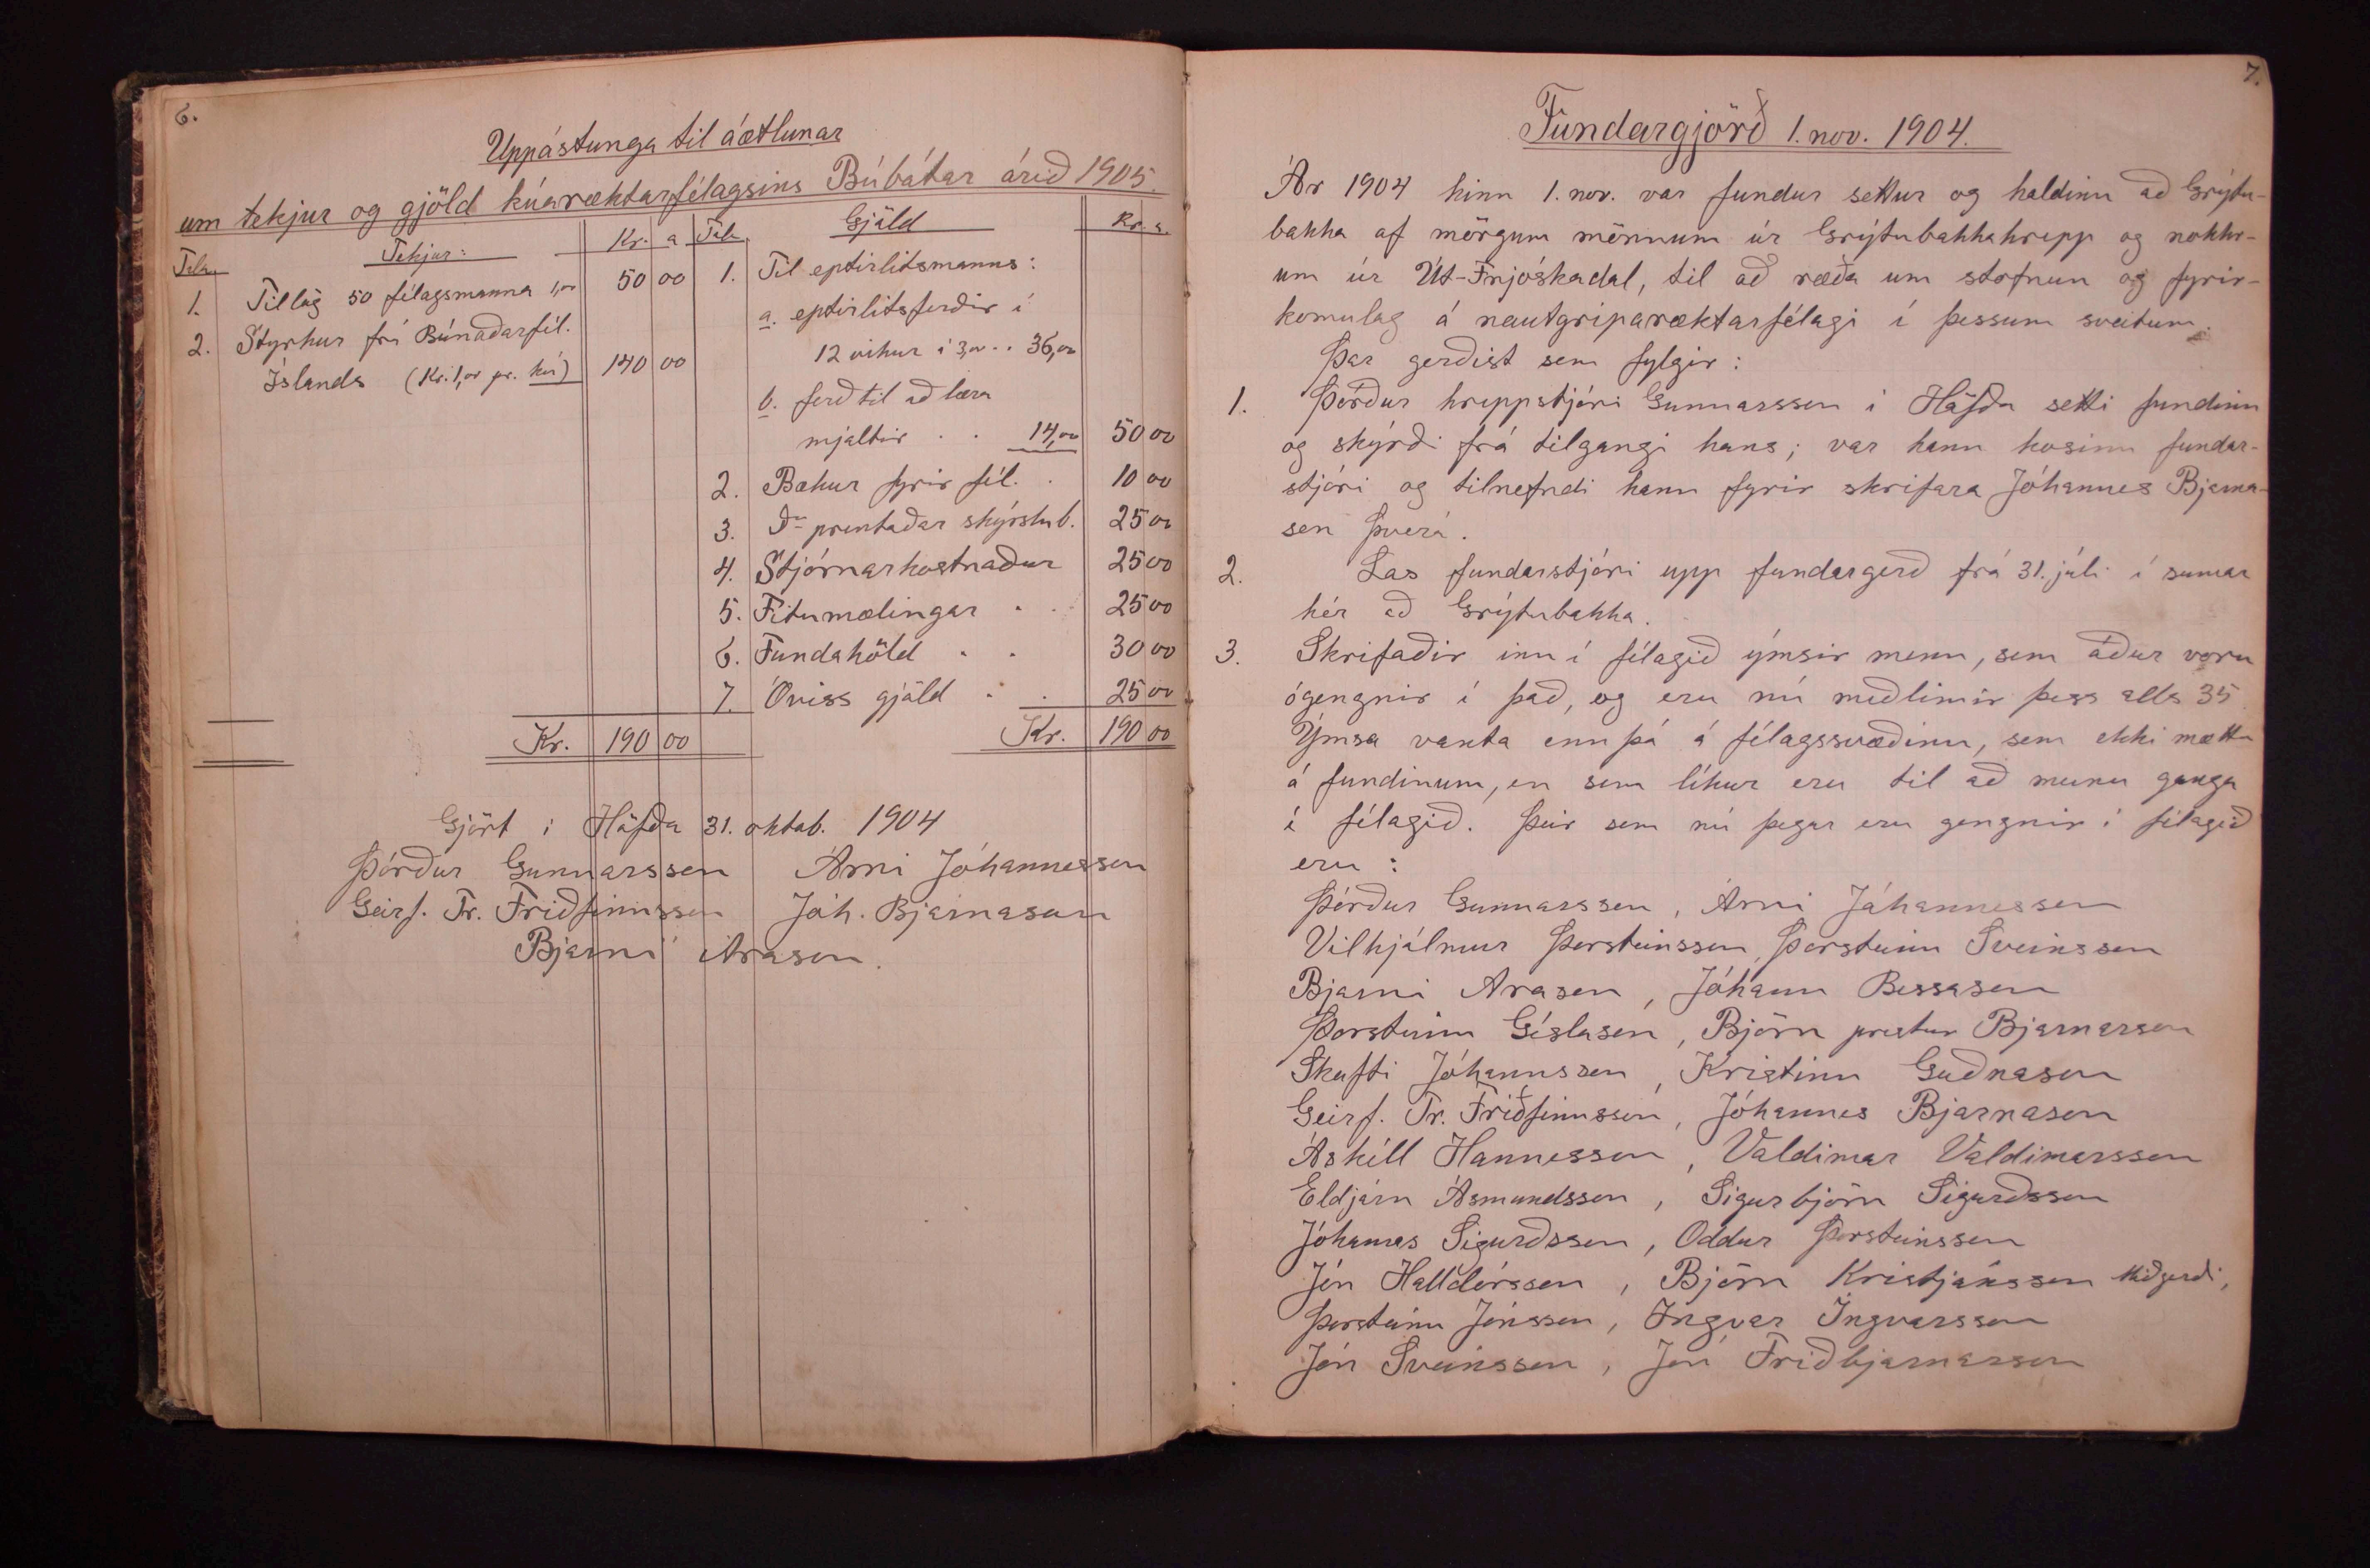 6.
Uppástunga til áætlunar
um tekjur og gjöld kúaræktarfélagsins Búbátar árið 1905.
Tala Tekjur: Kr. a
1. Tillög 50 félagsmanna 1,00 50 00
2. Styrkur frá Búnaðarfél.
Íslands (Kr. 1,00 pr. kú) 140 00
Kr. 190 00
Tala Gjöld Kr. a.
1. Til eptirlitsmanns:
a. eptirlitsferðir í
12 vikur á 3,00 . . 36,00
b. ferð til að læra
mjaltir . . 14,00 50 00
2. Bækur fyrir fél. . 10 00
3. Do prentaðar skýrslub. 25 00
4. Stjórnarkostnaður 25 00
5. Fitumælingar . . 25 00
6. Fundahöld . . 30 00
7. Óviss gjöld . . 25 00
Kr. 190 00
Gjört í Höfða 31. oktob. 1904
Þórður Gunnarsson Árni Jóhannesson
Geirf. Tr. Friðfinnsson Jóh. Bjarnason
Bjarni Arason.
7.
Fundargjörð 1. nov. 1904.
Ár 1904 hinn 1. nov. var fundur settur og haldinn að Grýtu-
bakka af mörgum mönnum úr Grýtubakkahrepp og nokkr-
um úr Út-Fnjóskadal, til að ræða um stofnun og fyrir-
komulag á nautgriparæktarfélagi í þessum sveitum.
Þar gerðist sem fylgir:
1. Þórður hreppstjóri Gunnarsson í Höfða setti fundinn
og skýrði frá tilgangi hans; var hann kosinn fundar-
stjóri og tilnefndi hann fyrir skrifara Jóhannes Bjarna-
son Þverá.
2. Las fundarstjóri upp fundargerð frá 31. júli í sumar
hér að Grýtubakka.
3. Skrifaðir inn í félagið ýmsir menn, sem áður voru
ógengnir í það, og eru nú meðlimir þess alls 35.
Ýmsa vanta enn þá á félagssvæðinu, sem ekki mættu
á fundinum, en sem líkur eru til að munu ganga
í félagið. Þeir sem nú þegar eru gengnir í félagið
eru:
Þórður Gunnarsson, Árni Jóhannesson
Vilhjálmur Þorsteinsson, Þorsteinn Sveinsson
Bjarni Arason, Jóhann Bessason
Þorsteinn Gíslason, Björn prestur Bjarnarson
Skafti Jóhannsson, Kristinn Guðnason
Geirf. Tr. Friðfinnsson, Jóhannes Bjarnason
Áskell Hannesson, Valdimar Valdimarsson
Eldjárn Ásmundsson, Sigurbjörn Sigurðsson
Jóhannes Sigurðsson, Oddur Þorsteinsson
Jón Halldórsson, Björn Kristjánsson Miðgerði,
Þorsteinn Jónsson, Ingvar Ingvarsson
Jón Sveinsson, Jón Friðbjarnarson